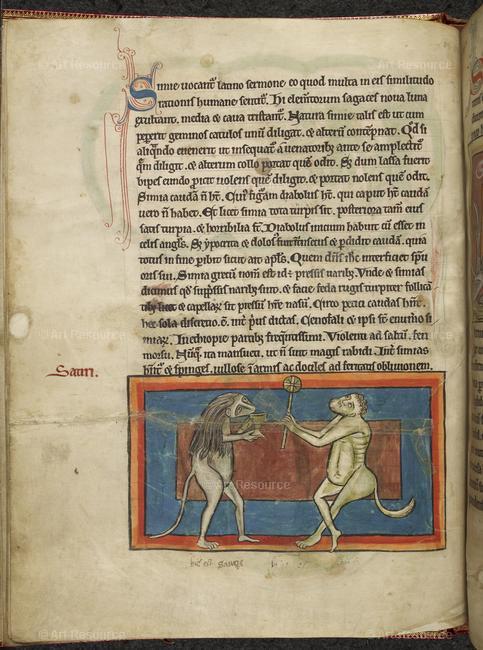 Simie uocant᷑ latino sermone eo quod multa in eis similitudo
rationis humane sentit᷑. Hi elem̃torum sagaces noua luna
exultant. media et caua tristant᷑. Natura simie talis est ut cum
peperit geminos catulos unũ diligat. et alterũ contẽpnat. Qd̓ si
aliqñdo euenerit ut insequat᷑ a uenatoribȝ ante se amplectit᷑
q̃m diligit. et alterum collo portat quẽ odit. Sȝ dum lassa fuerit
bipes eundo proicit uolens quẽ diligit. et portat nolens quẽ odit.
Simia caudã ñ ht̃. Cui᷒ figam diabolus ht̃. qui caput ht̃ caudã
uero ñ habet. Et licet simia tota turpis sit. posteriora tam̃ ei᷒
satis turpia. et horribilia st̃. Diabolus inicium habuit cũ esset in
celis angl̃s. Sȝ ypocrita et dolos᷒ fuit intrinsecus et perdidit caudã. quia
totus in fine peribit sicut ait apl̃s. Quem dñs ih̃c interficiet sp̃u
oris sui. Simia grecũ nom̃ est id ̃ pressis naribȝ. Unde et simias
dicimus qd̓ supp̃ssis naribȝ sint. et facie feda rugis turpiter follica
tibȝ licet et capellaȝ sit pressũ hr̃e nasũ. Circopetici caudas hñt.
hec sola discretio ẽ. int̃ p̓us dictas. Cenofali et ipsi st̃ e num̃o si
miaȝ. In ethiopie partibȝ frequentissimi. Violenti ad saltũ. feri
morsu. Nũq̃ ita mansueti. ut ñ sint magis rabidi. Int̃ simias
hñt᷑ et spinges. uillose ĩ armis ac dociles ad feritatis obliuionem.
Satiri.
hic est satirus
© Art Resource